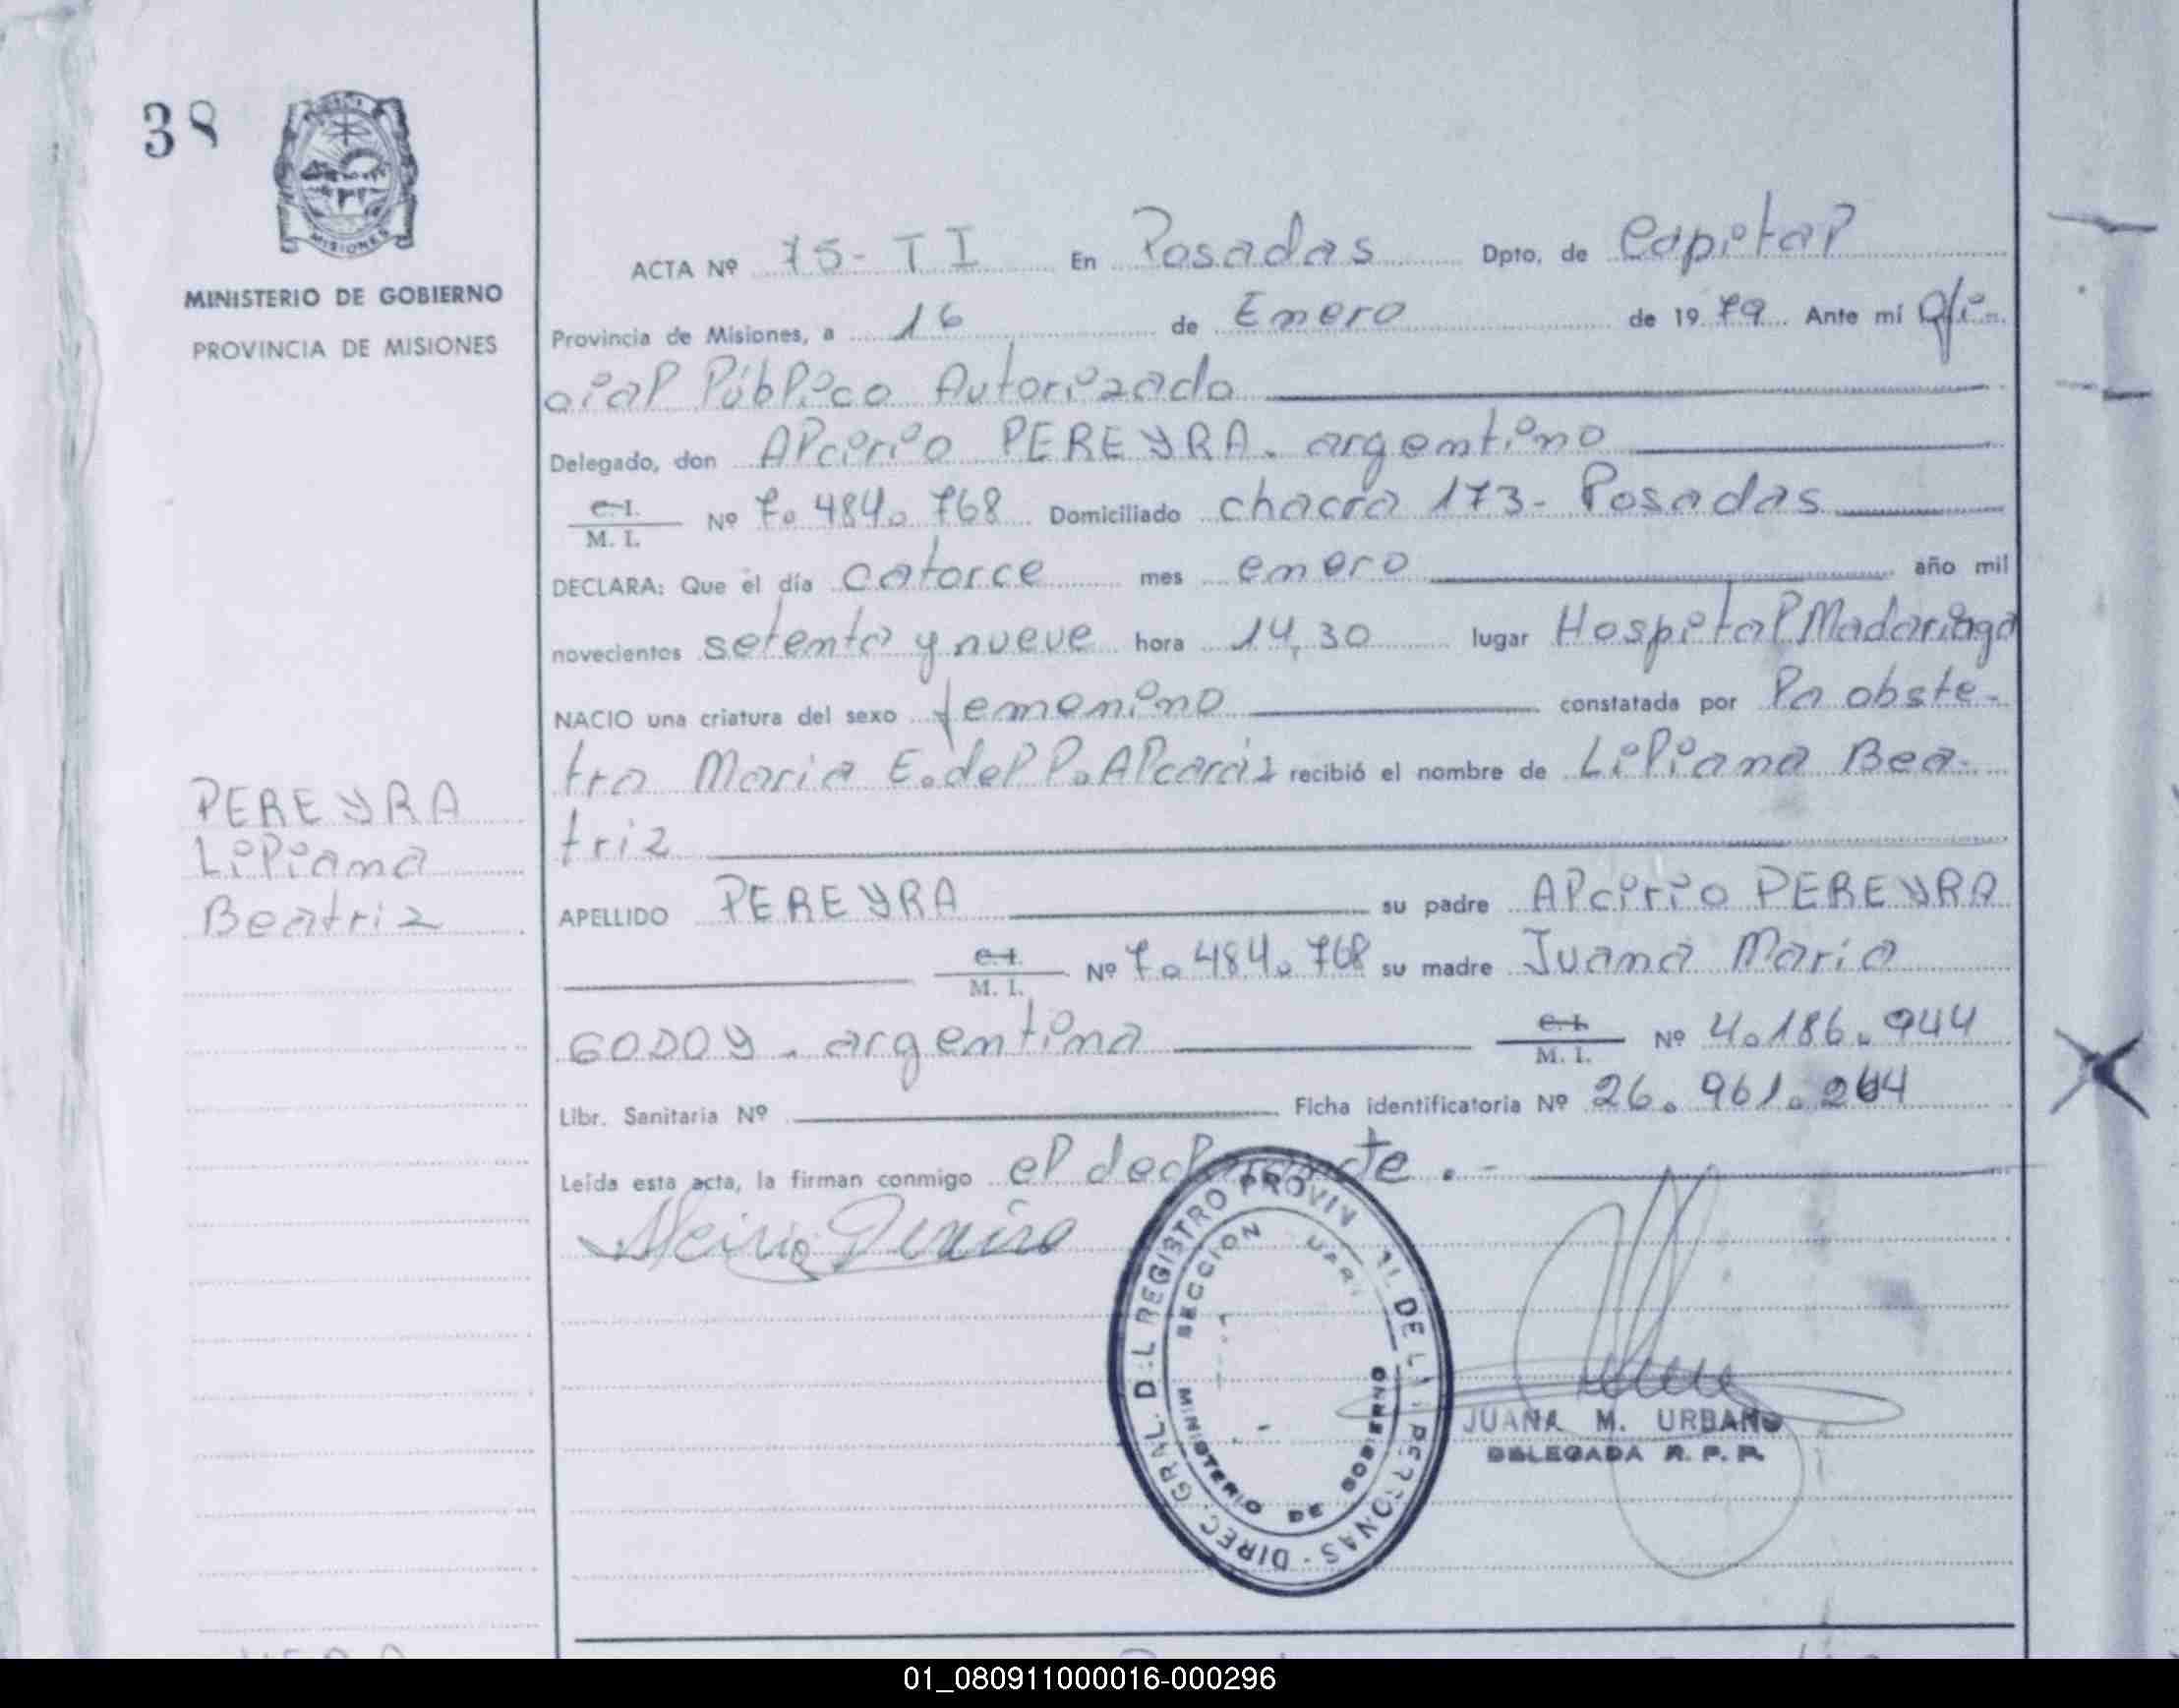 38
MISIONES
MINISTERIO DE GOBIERNO
PROVINCIA DE MISIONES
ACTA Nº 75-TI En Posadas Dpto. de Capital
Provincia de Misiones, a 16 de Enero de 1979. Ante mí Ofi-
cial Público Autorizado
Delegado, don Alcirio PEREYRA. argentino
C.I.
M. I. Nº 7.484.768 Domiciliado chacra 173- Posadas
DECLARA: Que el día catorce mes enero año mil
novecientos setenta y nueve hora 14,30 lugar Hospital Madariaga
NACIO una criatura del sexo femenino constatada por la obste-
tra Maria E. del P. Alcaráz recibió el nombre de Liliana Bea-
triz
PEREYRA
Liliana
Beatriz
APELLIDO PEREYRA su padre Alcirio PEREYRA
C.I.
M. I. Nº 7.484.768 su madre Juana Maria
GODOY. argentina C.I.
M. I. Nº 4.186.944
Libr. Sanitaria Nº Ficha identificatoria Nº 26.961.264
Leída esta acta, la firman conmigo el declarante.-
DIREC. GRAL. DEL REGISTRO PROVIN DE PERSONAS
SECCION
MINISTERIO DE GOBIERNO
JUANA M. URBANO
DELEGADA R. P. P.
01_080911000016-000296